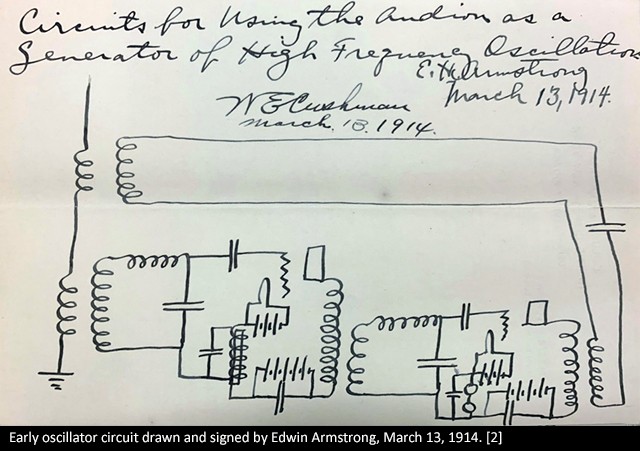 Circuits for Using the Audion as a
Generator of High Frequency Oscillations
E.H. Armstrong
March 13, 1914.
W E Cushman
March. 13. 1914.
Early oscillator circuit drawn and signed by Edwin Armstrong, March 13, 1914. [2]